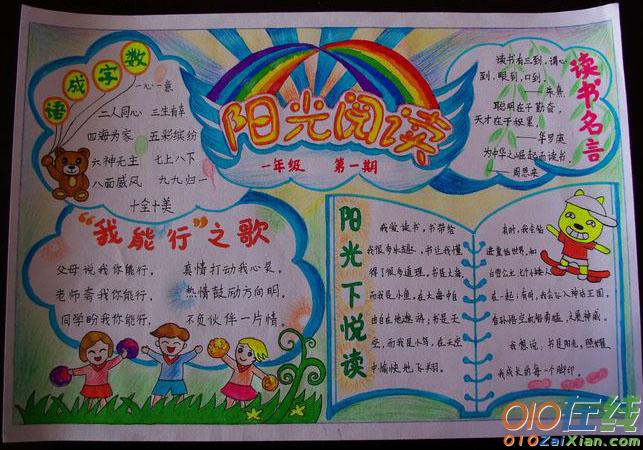 数字成语
一心一意
二人同心 三生有幸
四海为家 五彩缤纷
六神无主 七上八下
八面威风 九九归一
十全十美
阳光阅读
一年级 第一期
读书名言
读书有三到,谓心
到,眼到,口到。
——朱熹
聪明在于勤奋,
天才在于积累。
——华罗庚
为中华之崛起而读书。
——周恩来
“我能行”之歌
父母说我你能行, 真情打动我心裂。
老师夸我你能行, 热情鼓励方向明。
同学盼我你能行, 不负伙伴一片情。
阳光下悦读
我爱读书,书带给
我很多乐趣,书让我懂
得了很多道理。书是大海
而我是小鱼,在大海中自
由自在地遨游;书是天
空,而我是小鸟,在天空
中愉快地飞翔。
有时,我会钻
进童话世界,和
白雪公主、七个小矮人
在一起;有时,我会飞入神话王国,
我想说,书是阳光,照耀
我成长的每一个脚印。
010在线
010ZaiXian.com